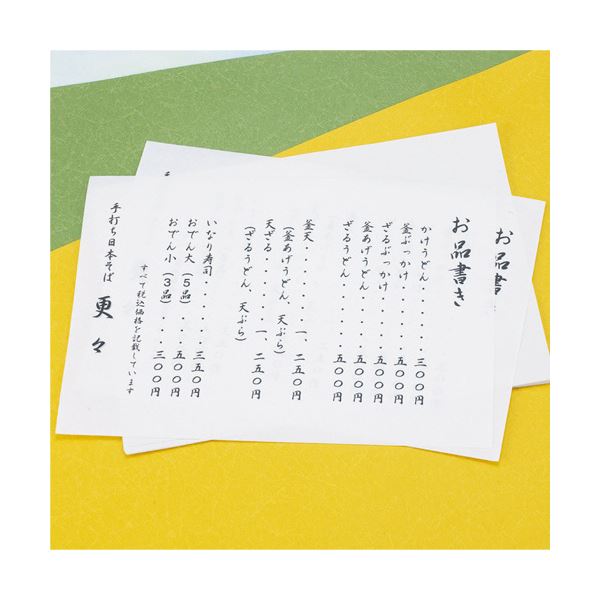 お品書き
かけうどん・・・・・三〇〇円
釜ぶっかけ・・・・・五〇〇円
ざるぶっかけ・・・・五〇〇円
釜あげうどん・・・・五〇〇円
ざるうどん・・・・・五〇〇円
釜天・・・・・・一、二五〇円
(釜あげうどん、天ぷら)
天ざる・・・・・一、二五〇円
(ざるうどん、天ぷら)
いなり寿司・・・・・三五〇円
おでん大(5品)・・・五〇〇円
おでん小(3品)・・・三〇〇円
すべて税込価格を記載しています
手打ち日本そば 更々
お品書